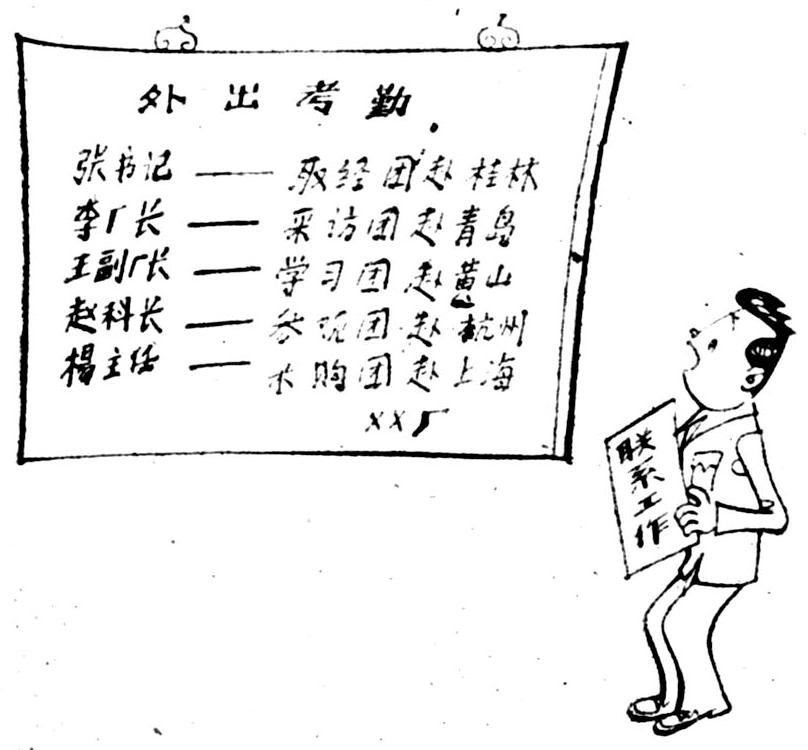 外出考勤
张书记——取经团赴桂林
李厂长——采访团赴青岛
王副厂长——学习团赴黄山
赵科长——参观团赴杭州
杨主任——采购团赴上海
XX厂
联系工作